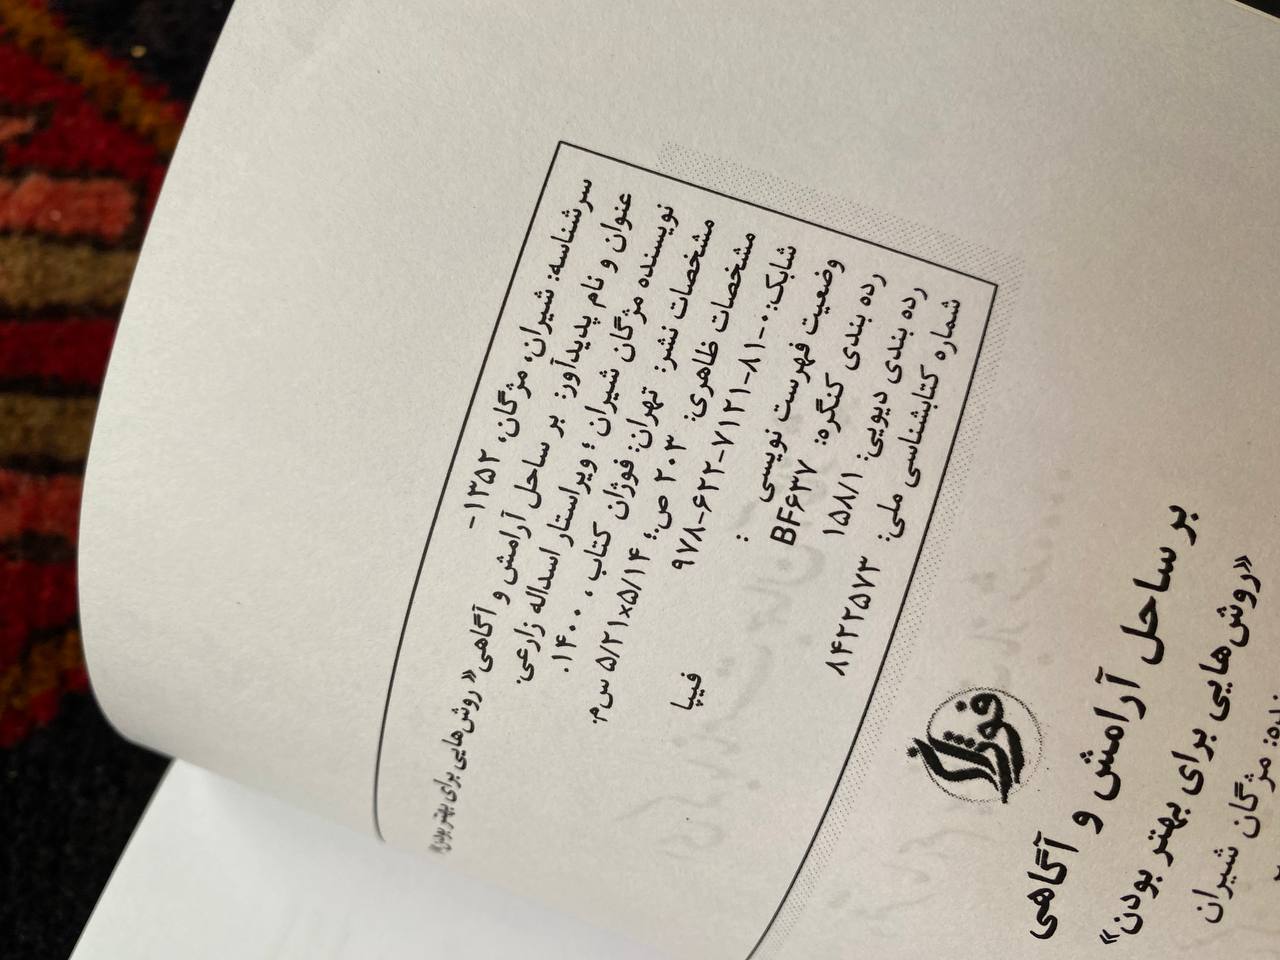 سرشناسه: شیران، مژگان، ۱۳۵۲-
عنوان و نام پدیدآور: بر ساحل آرامش و آگاهی « روش‌هایی برای بهتر بودن»
نویسنده مژگان شیران ؛ ویراستار اسداله زارعی.
مشخصات نشر: تهران: فوژان کتاب ، ۱۴۰۰.
مشخصات ظاهری: ۲۰۳ ص.؛ ۵/۲۱×۵/۱۴ س‌م.
شابک: ۰-۸۱-۷۱۲۱-۶۲۲-۹۷۸
وضعیت فهرست نویسی : فیپا
رده بندی کنگره: BF۶۳۷
رده بندی دیویی: ۱۵۸/۱
شماره کتابشناسی ملی: ۸۴۲۲۵۷۳
فوژان
بر ساحل آرامش و آگاهی
«روش‌هایی برای بهتر بودن»
مژگان شیران